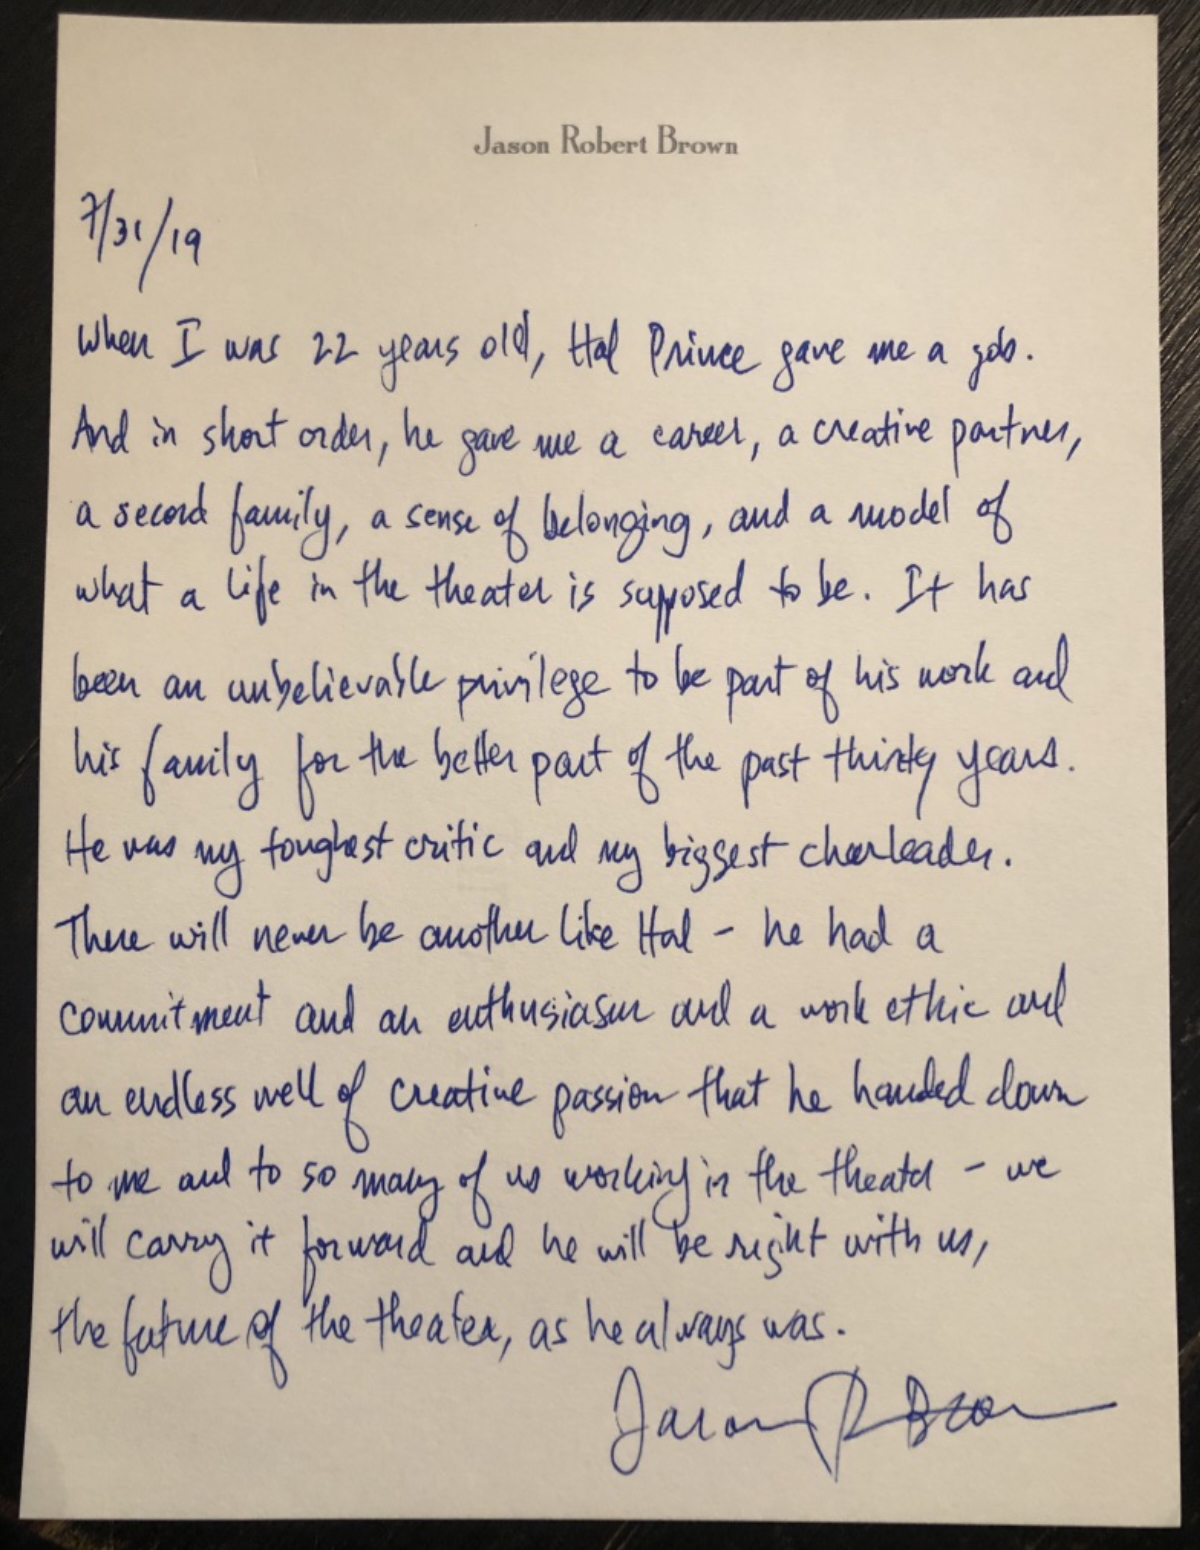 Jason Robert Brown
7/31/19
When I was 22 years old, Hal Prince gave me a job.
And in short order, he gave me a career, a creative partner,
a second family, a sense of belonging, and a model of
what a life in the theater is supposed to be. It has
been an unbelievable privilege to be part of his work and
his family for the better part of the past thirty years.
He was my toughest critic and my biggest cheerleader.
There will never be another like Hal – he had a
commitment and an enthusiasm and a work ethic and
an endless well of creative passion that he handed down
to me and to so many of us working in the theater – we
will carry it forward and he will be right with us,
the future of the theater, as he always was.
Jason R Brown